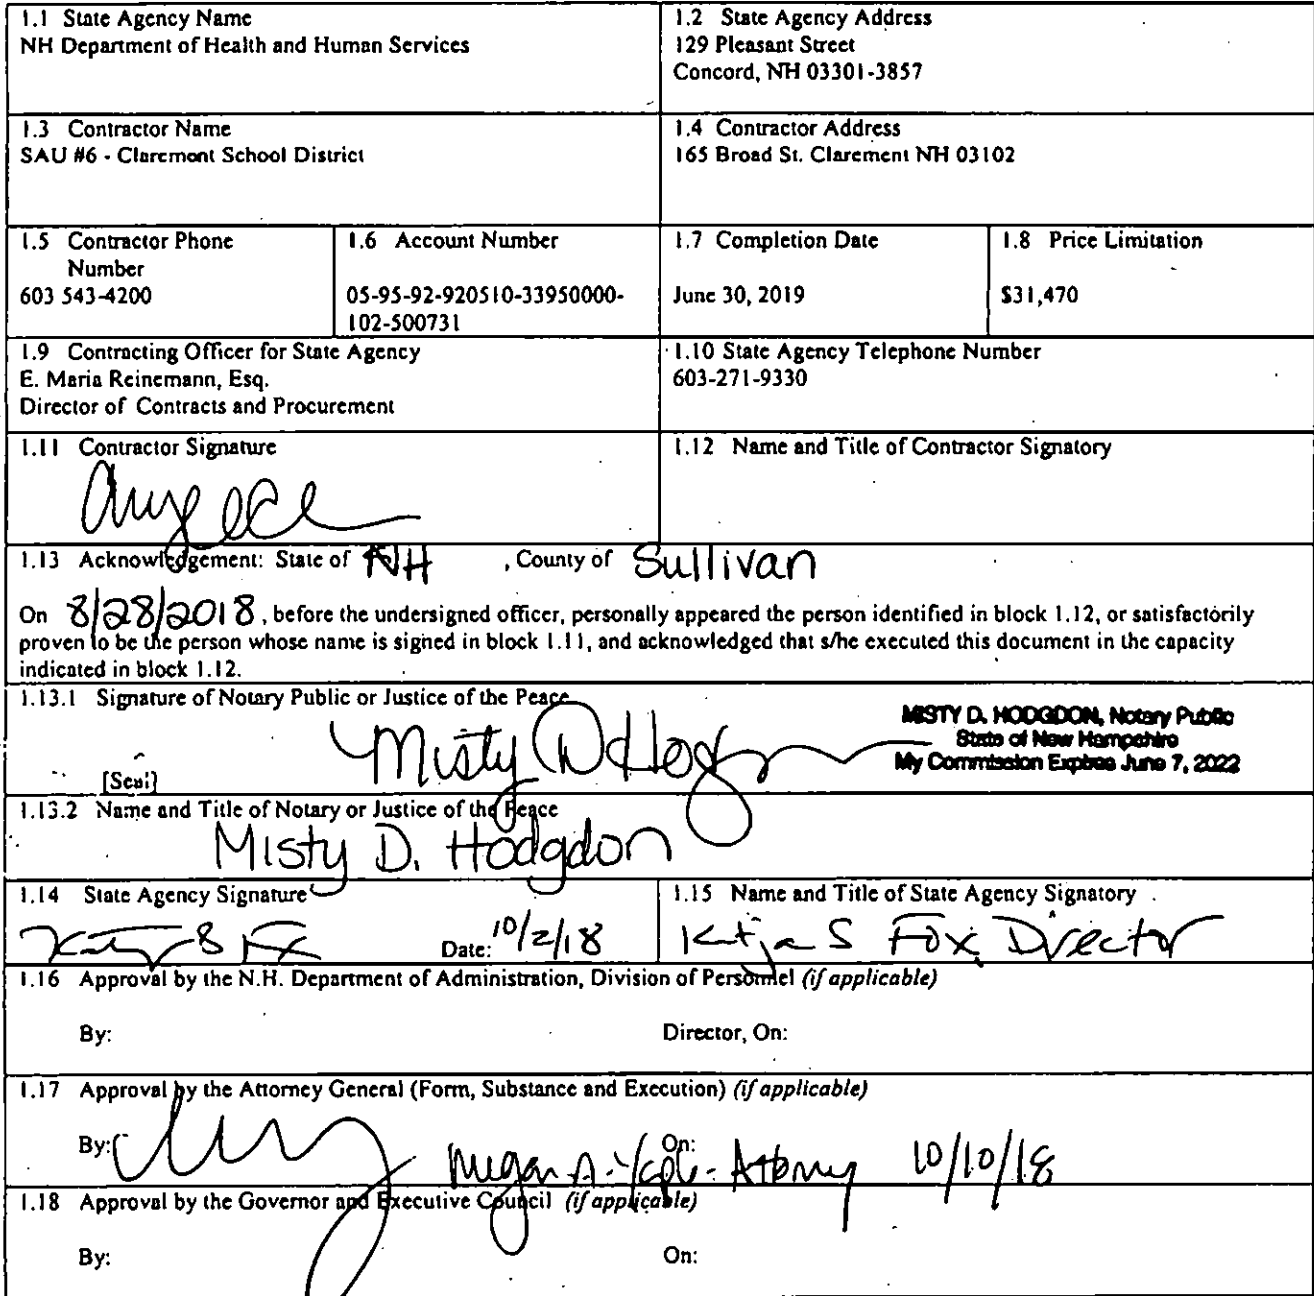 1.1 State Agency Name
NH Department of Health and Human Services
1.2 State Agency Address
129 Pleasant Street
Concord, NH 03301-3857
1.3 Contractor Name
SAU #6 - Claremont School District
1.4 Contractor Address
165 Broad St. Clarement NH 03102
1.5 Contractor Phone
Number
603 543-4200
1.6 Account Number
05-95-92-920510-33950000-
102-500731
1.7 Completion Date
June 30, 2019
1.8 Price Limitation
$31,470
1.9 Contracting Officer for State Agency
E. Maria Reinemann, Esq.
Director of Contracts and Procurement
1.10 State Agency Telephone Number
603-271-9330
1.11 Contractor Signature
1.12 Name and Title of Contractor Signatory
1.13 Acknowledgement: State of NH , County of Sullivan
On 8/28/2018, before the undersigned officer, personally appeared the person identified in block 1.12, or satisfactorily
proven to be the person whose name is signed in block 1.11, and acknowledged that s/he executed this document in the capacity
indicated in block 1.12.
1.13.1 Signature of Notary Public or Justice of the Peace
Misty D Hodg
MISTY D. HODGDON, Notary Public
State of New Hampshire
My Commission Expires June 7, 2022
[Seal]
1.13.2 Name and Title of Notary or Justice of the Peace
Misty D. Hodgdon
1.14 State Agency Signature
Date: 10/2/18
1.15 Name and Title of State Agency Signatory
Katja S Fox, Director
1.16 Approval by the N.H. Department of Administration, Division of Personnel (if applicable)
By:
Director, On:
1.17 Approval by the Attorney General (Form, Substance and Execution) (if applicable)
By:
On:
Megan A. - Attorney 10/10/18
1.18 Approval by the Governor and Executive Council (if applicable)
By:
On: